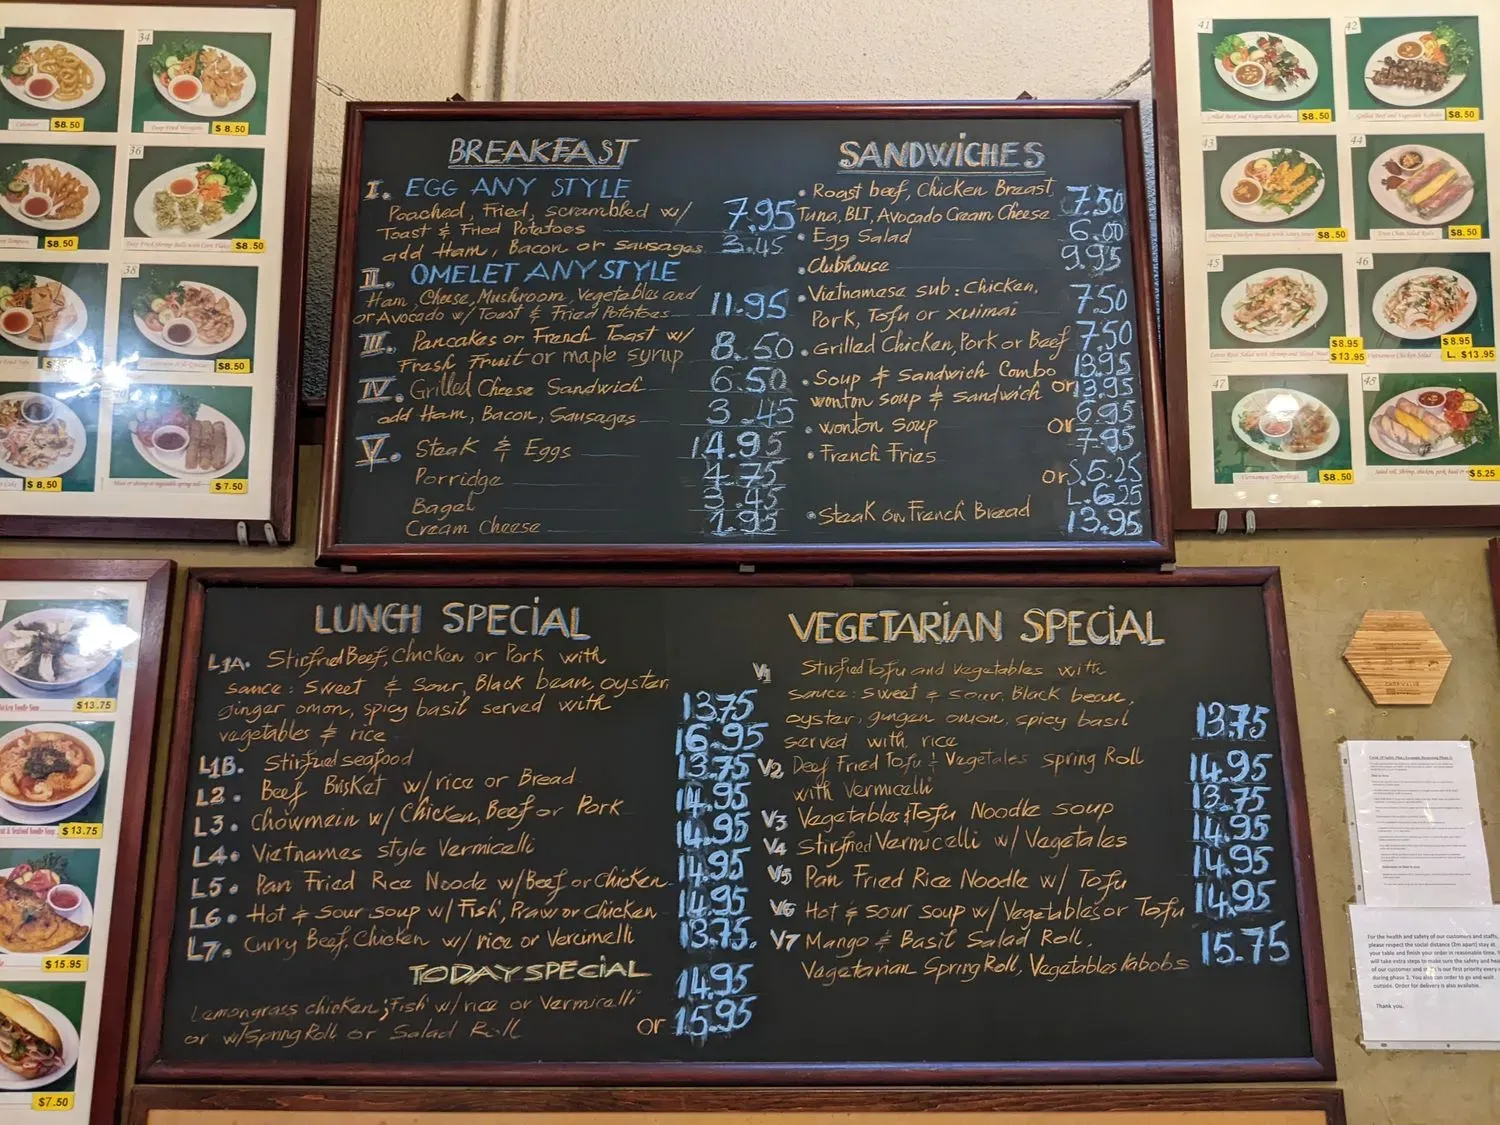 BREAKFAST
I. EGG ANY STYLE
Poached, Fried, scrambled w/
Toast & Fried Potatoes 7.95
add Ham, Bacon or sausages 3.45
II. OMELET ANY STYLE
Ham, Cheese, Mushroom, Vegetables and
or Avocado w/ Toast & Fried Potatoes 11.95
III. Pancakes or French Toast w/
Fresh Fruit or maple syrup 8.50
IV. Grilled Cheese Sandwich 6.50
add Ham, Bacon, Sausages 3.45
V. Steak & Eggs 14.95
Porridge 4.75
Bagel 3.45
Cream Cheese 1.95
SANDWICHES
• Roast beef, Chicken Breast 7.50
Tuna, BLT, Avocado Cream Cheese
• Egg Salad 6.00
• Clubhouse 9.95
• Vietnamese sub: Chicken,
Pork, Tofu or xuimai 7.50
• Grilled Chicken, Pork or Beef 7.50
• Soup & Sandwich Combo 13.95
wonton soup & sandwich or 13.95
• wonton soup 6.95
or 7.95
• French Fries
or S.5.25
L.6.25
• Steak on French Bread 13.95
LUNCH SPECIAL
L1A. Stirfried Beef, Chicken or Pork with
sauce: Sweet & Sour, Black bean, oyster,
ginger onion, spicy basil served with 13.75
vegetables & rice
L1B. Stirfried seafood 16.95
L2. Beef Brisket w/rice or Bread 13.75
L3. Chowmein w/ Chicken, Beef or Pork 14.95
L4. Vietnames style Vermicelli 14.95
L5. Pan Fried Rice Noodle w/Beef or Chicken 14.95
L6. Hot & Sour soup w/ Fish, Prawn or Chicken 14.95
L7. Curry Beef, Chicken w/ rice or Vercimelli 13.75.
TODAY SPECIAL
Lemongrass chicken; Fish w/ rice or Vermicalli 14.95
or w/Spring Roll or Salad Roll or 15.95
VEGETARIAN SPECIAL
V1 Stirfried Tofu and vegetables with
sauce: sweet & sour, Black bean,
oyster, gingen onion, spicy basil 13.75
served with rice
V2 Deef Fried Tofu & Vegetales spring Roll 14.95
with Vermicilli
V3 Vegetables & Tofu Noodle soup 13.75
V4 Stirfried Vermicelli w/ Vegetales 14.95
V5 Pan Fried Rice Noodle w/ Tofu 14.95
V6 Hot & sour soup w/ Vegetables or Tofu 14.95
V7 Mango & Basil Salad Roll, 15.75
Vegetarian Spring Roll, Vegetables Kabobs
34
Calamari $8.50
Deep Fried Wontons $8.50
36
$8.50
Deep Fried Shrimp Balls with Corn Flakes $8.50
38
$8.50
$8.50
$7.50
41
42
Grilled Beef and Vegetable Kabobs $8.50
Grilled Beef and Vegetable Kabobs $8.50
43
44
$8.50
$8.50
45
46
$8.95
$13.95
Vietnamese Chicken Salad
$8.95
L. $13.95
47
48
Vietnamese Dumplings $8.50
$5.25
$13.75
& Seafood Noodle Soup $13.75
$15.95
$7.50
For the health and safety of our customers and staffs,
please respect the social distance (2m apart) stay at
your table and finish your order in reasonable time.
will take extra steps to make sure the safety and hea
of our customer and is our first priority every
during phase 1. You also can order to go and wait
outside. Order for delivery is also available.
Thank you.